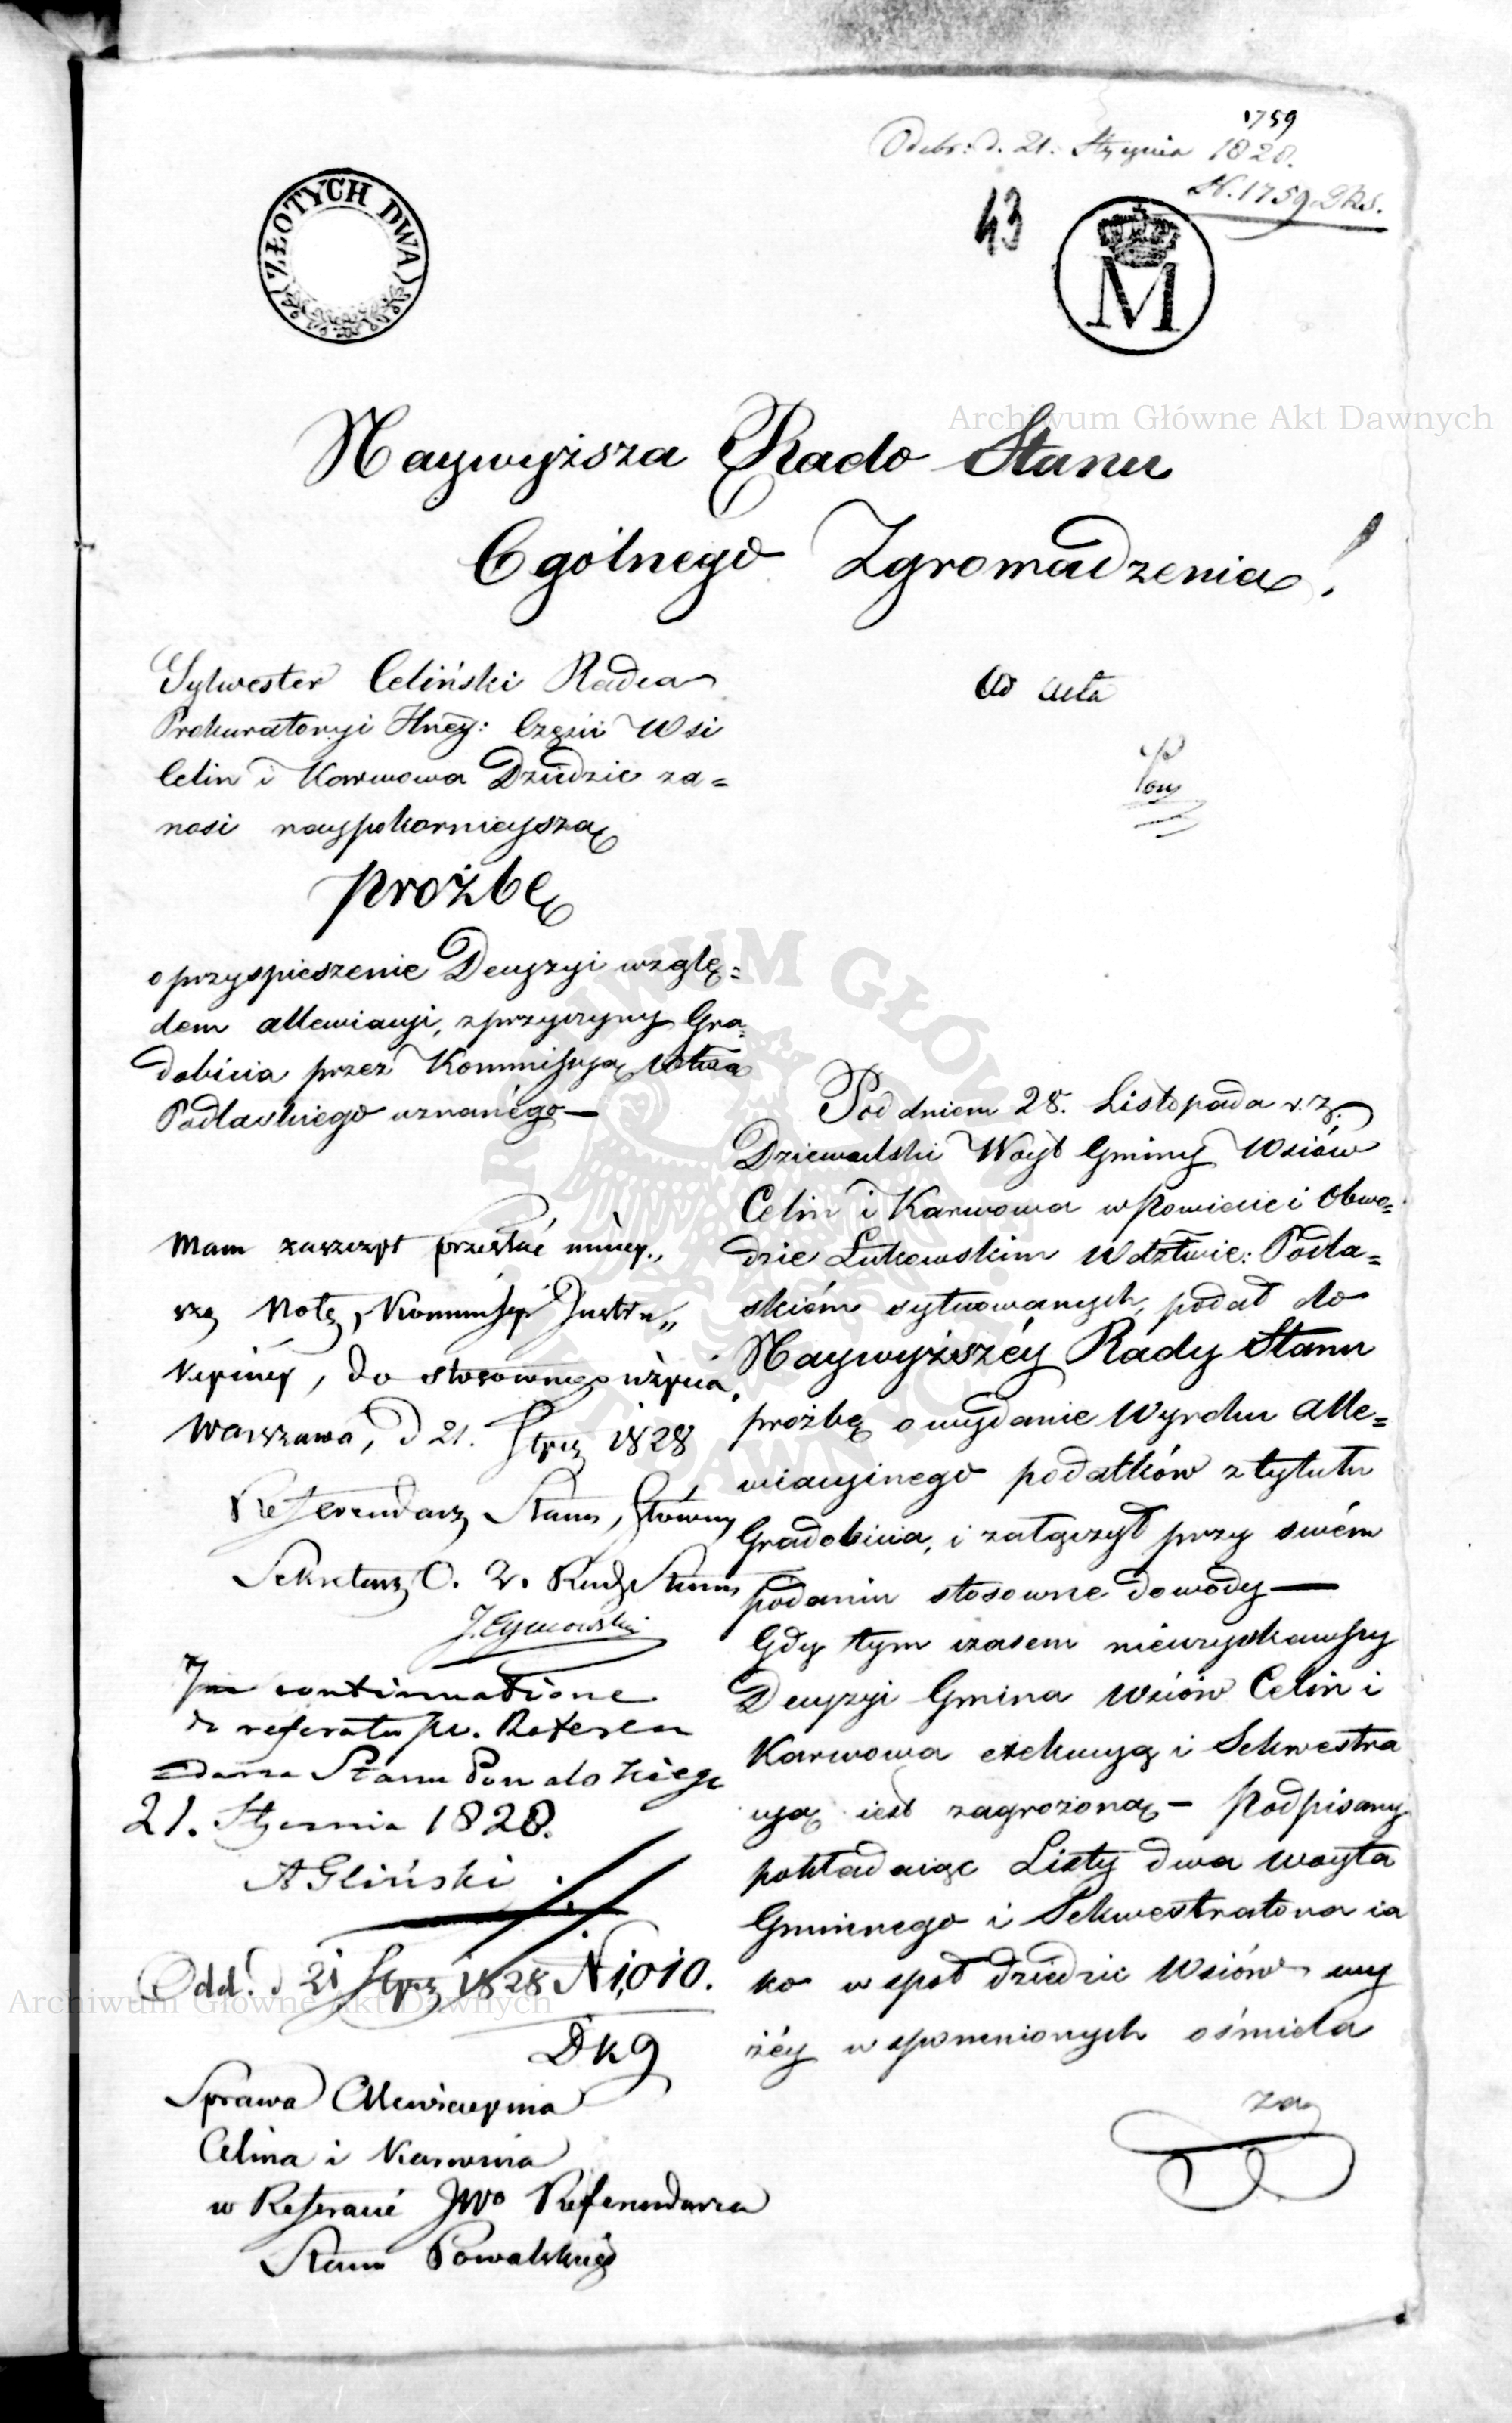 1759
Odebr: d. 21. Stycznia 1828.
N. 1759 DKS.
43
ZŁOTYCH DWA
M
Archiwum Główne Akt Dawnych
Naywyższa Rado Stanu
Ogólnego Zgromadzenia!
Sylwester Celiński Radca
Prokuratoryi Części Wsi
Celin i Karwowa Dziedzic za=
nosi naypokornieyszą
prożbę
o przyspieszenie Decyzyi wzglę=
dem allewiacyi, z przyczyny Gra=
dobicia przez Kommissyą Wdtwa
Podlaskiego uznanégo—
Mam zaszczyt przesłać niniey„
szą Notę, Kommissyi Instru„
kcyiney, do stosownego użycia,
Warszawa, d 21. Stycz 1828
Referendarz Stanu, Główny
Sekretarz O. Z. Rady Stanu
J. Tymowski
In continuatione
do referatu JW. Referen
darza Stanu Powalskiego
21. Stycznia 1828.
A Gliński
Odd. d 21 Stycz 1828 N 1,010.
DKG
Sprawa Allewiacyina
Celina i Karwowa
w Referacie JWo Referendarza
Stanu Powalskiego
ad acta
Pow
Pod dniem 28. Listopada r. z.
Dziewulski Woyt Gminy Wsiów
Celin i Karwowa w Powiecie i Obwo=
dzie Łukowskim Wdztwie: Podla=
skiém sytuowanych, podał do
Naywyższéy Rady Stanu
prożbę o wydanie Wyroku alle=
wiacyinego podatków z tytułu
Gradobicia, i załączył przy swém
podaniu stosowne dowody—
Gdy tym czasem nieuzyskawszy
Decyzyi Gmina Wsiów Celin i
Karwowa exekucyą i Sekwestra
cyą iest zagrożoną— Podpisany
pokładaiąc Listy dwa Woyta
Gminnego i Sekwestratora ia
ko wspoł dziedzic Wsiów wy
żéy wspomnionych ośmiela
za
Archiwum Główne Akt Dawnych
ARCHIWUM GŁÓWNE AKT DAWNYCH